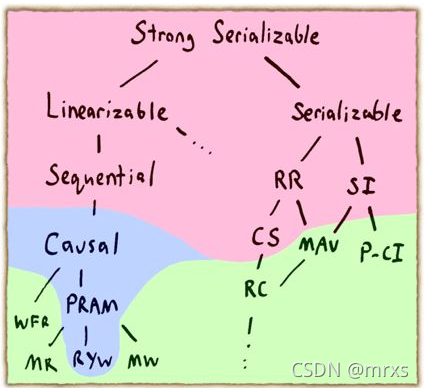 Strong Serializable
Linearizable
Serializable
Sequential
RR
SI
Causal
CS
MAV
P-CI
PRAM
RC
WFR
MR
RYW
MW
CSDN @mrxs